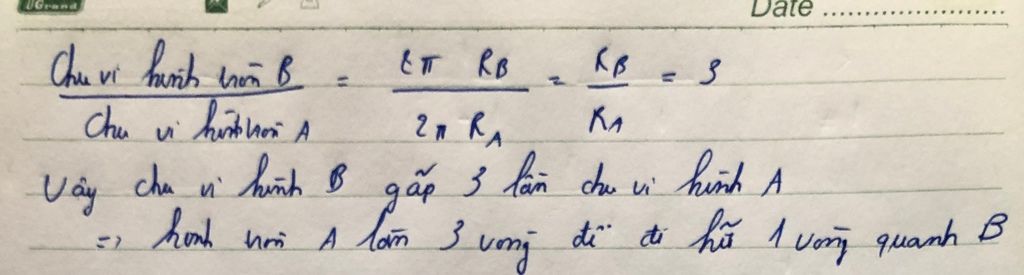 UGrand
Date ........................
Chu vi hình tròn B / Chu vi hình tròn A = 2π R_B / 2π R_A = R_B / R_A = 3
Vậy chu vi hình B gấp 3 lần chu vi hình A
=> hình tròn A lăn 3 vòng để đi hết 1 vòng quanh B